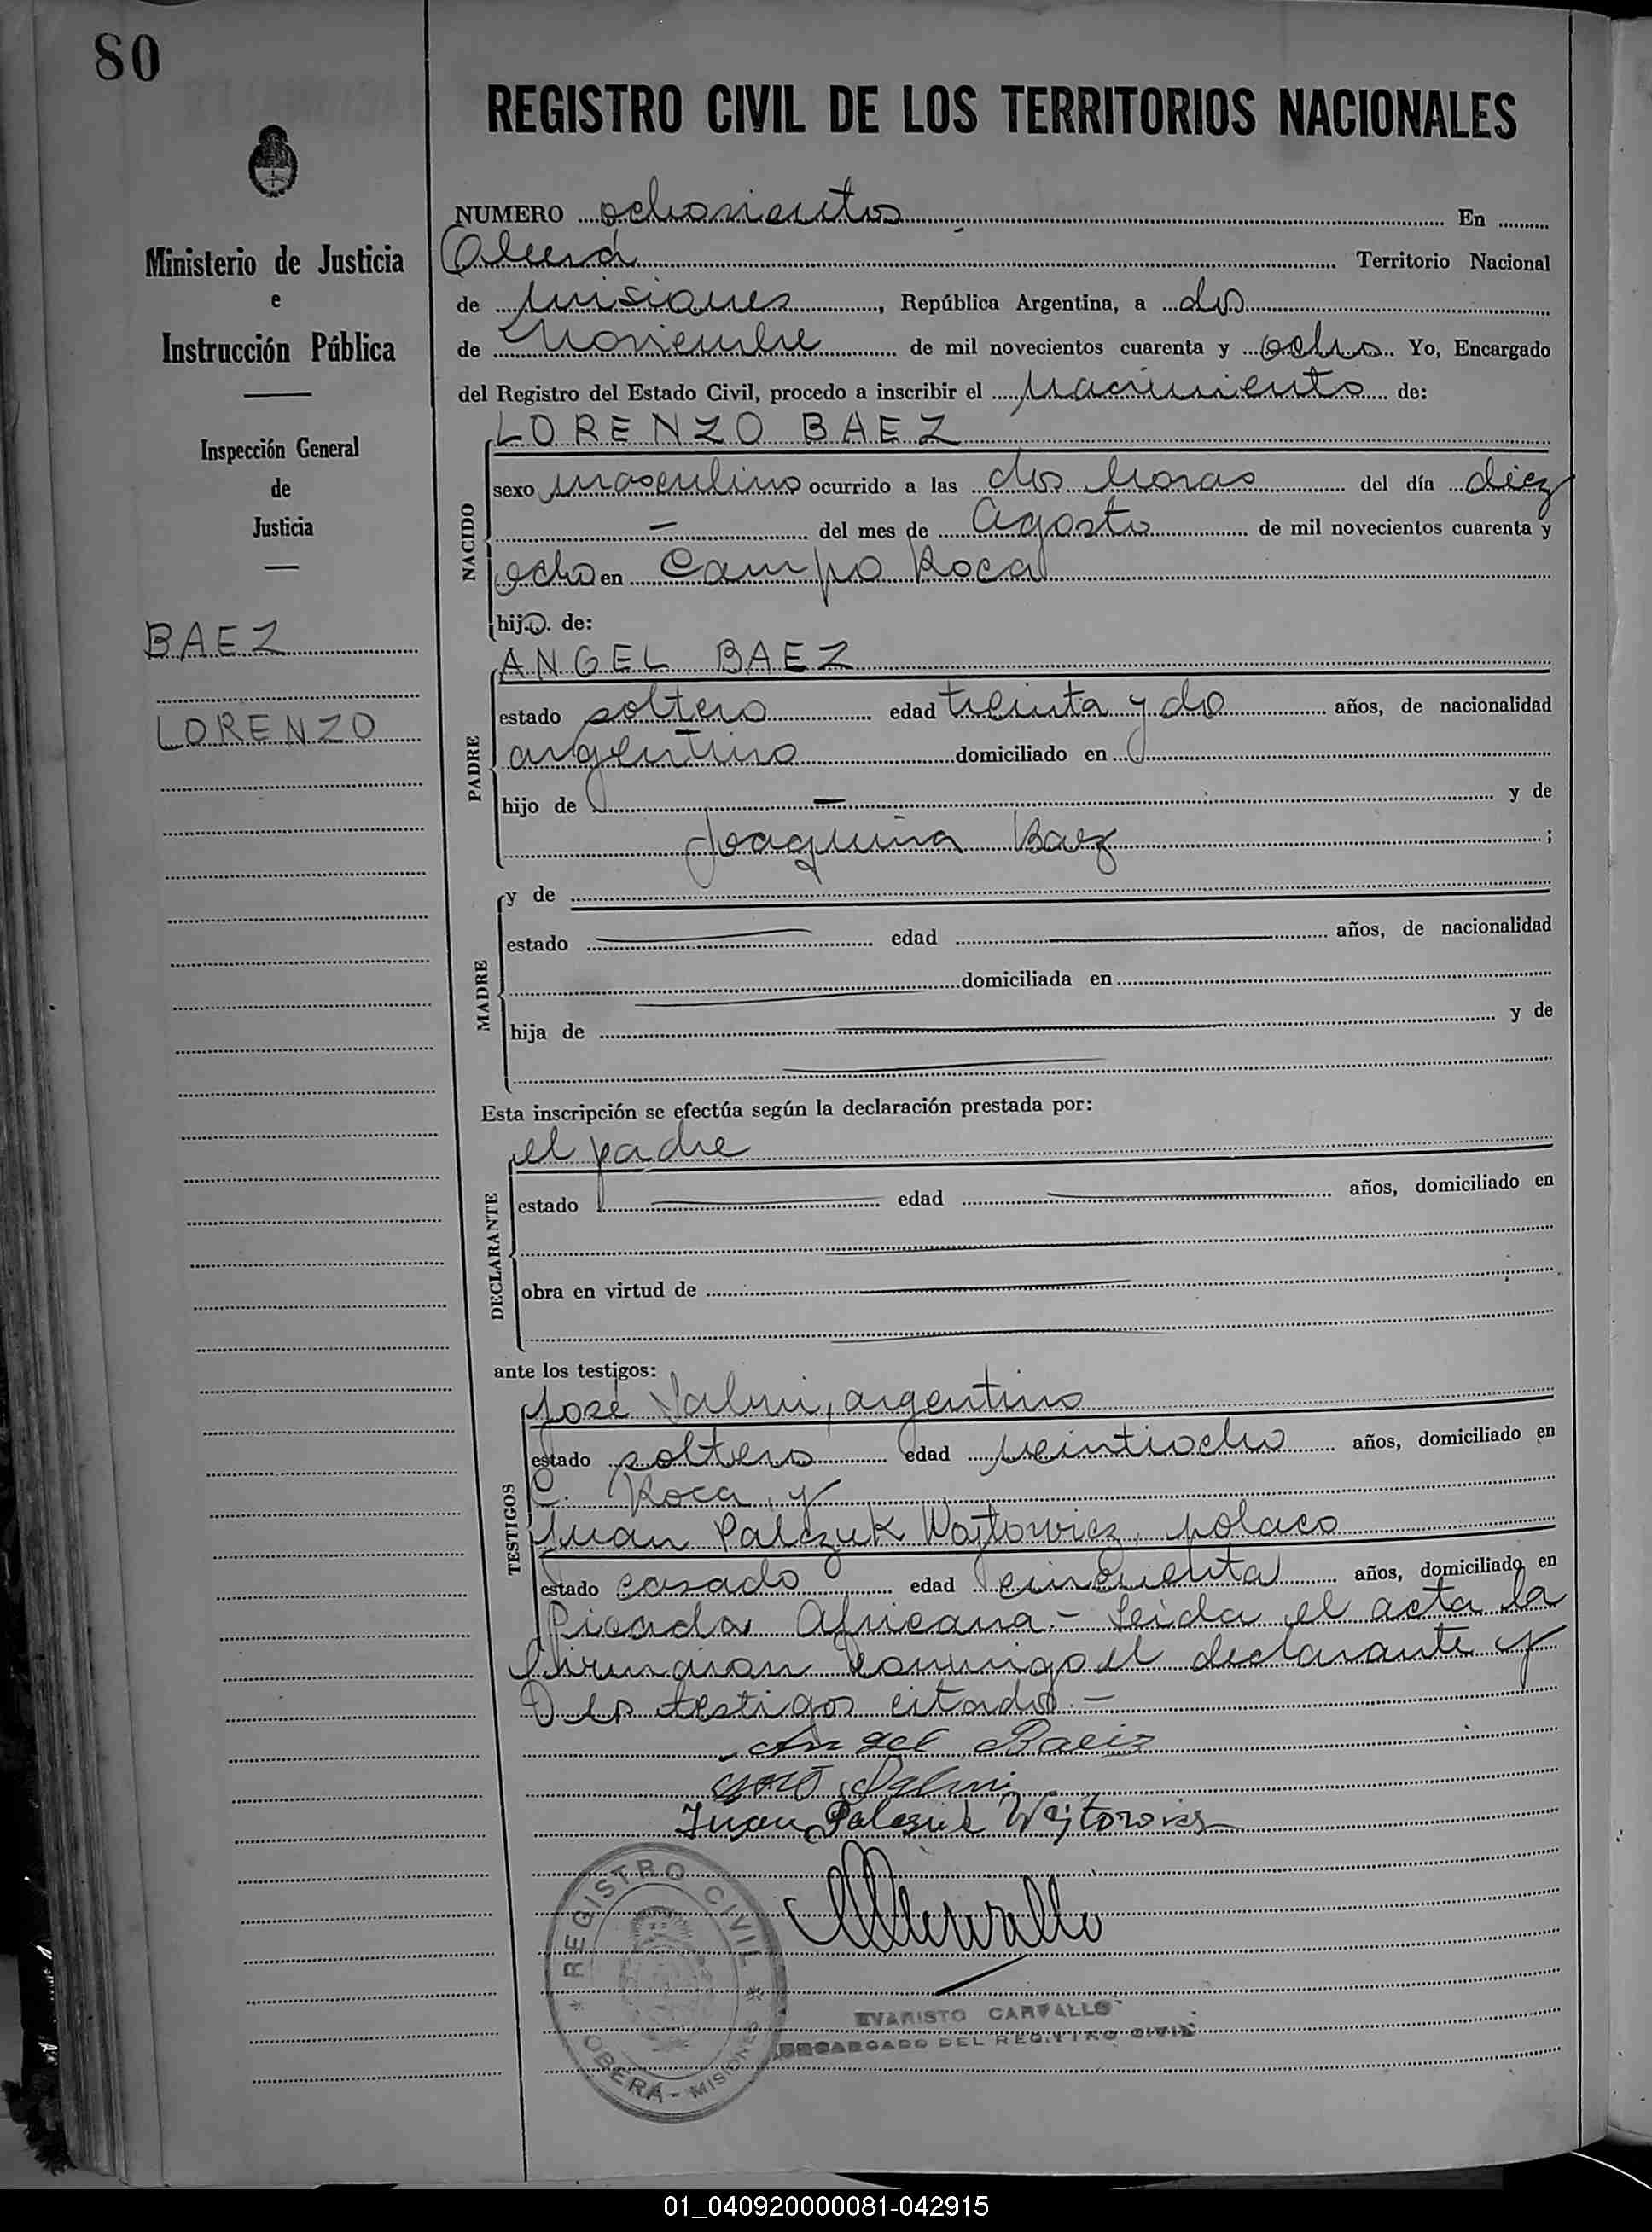 80
REGISTRO CIVIL DE LOS TERRITORIOS NACIONALES
Ministerio de Justicia
e
Instrucción Pública
Inspección General
de
Justicia
BAEZ
LORENZO
NUMERO ochocientos En
Oberá Territorio Nacional
de Misiones, República Argentina, a dos
de Noviembre de mil novecientos cuarenta y ocho Yo, Encargado
del Registro del Estado Civil, procedo a inscribir el nacimiento de:
NACIDO
LORENZO BAEZ
sexo masculino ocurrido a las dos horas del día diez
— del mes de Agosto de mil novecientos cuarenta y
ocho en Campo Roca
hijo de:
PADRE
ANGEL BAEZ
estado soltero edad treinta y dos años, de nacionalidad
argentino domiciliado en
hijo de — y de
Joaquina Baez ;
MADRE
y de
estado edad años, de nacionalidad
domiciliada en
hija de y de
Esta inscripción se efectúa según la declaración prestada por:
DECLARANTE
el padre
estado edad años, domiciliado en
obra en virtud de
ante los testigos:
TESTIGOS
José Dalmi, argentino
estado soltero edad veintiocho años, domiciliado en
C. Roca, y
Juan Palczuk Wojtowicz, polaco
estado casado edad cincuenta años, domiciliado en
Picada Africana.- Leida el acta la
firmaron conmigo el declarante y
los testigos citados.-
Angel Baeis
José Dalmi
Juan Palczuk Wojtowicz
REGISTRO CIVIL
OBERÁ - MISIONES
EVARISTO CARVALLO
ENCARGADO DEL REGISTRO CIVIL
01_040920000081-042915